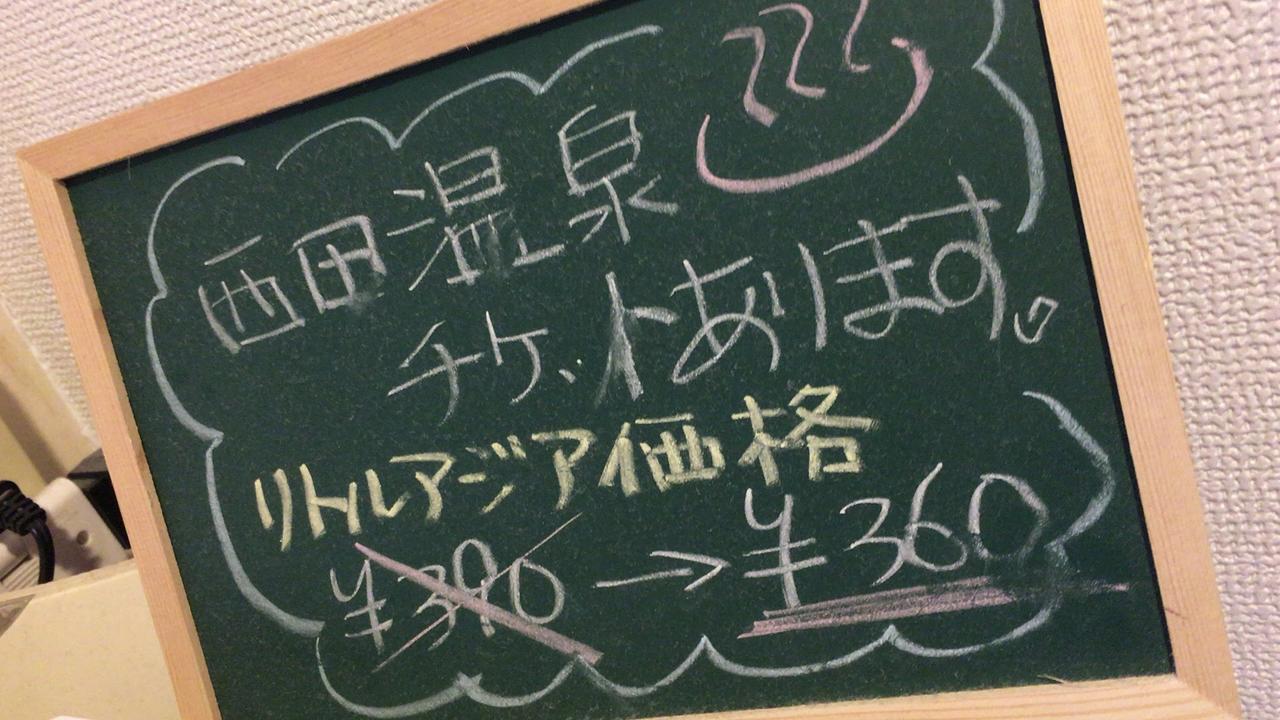 西田温泉
チケットあります。
リトルアジア価格
¥390→¥360